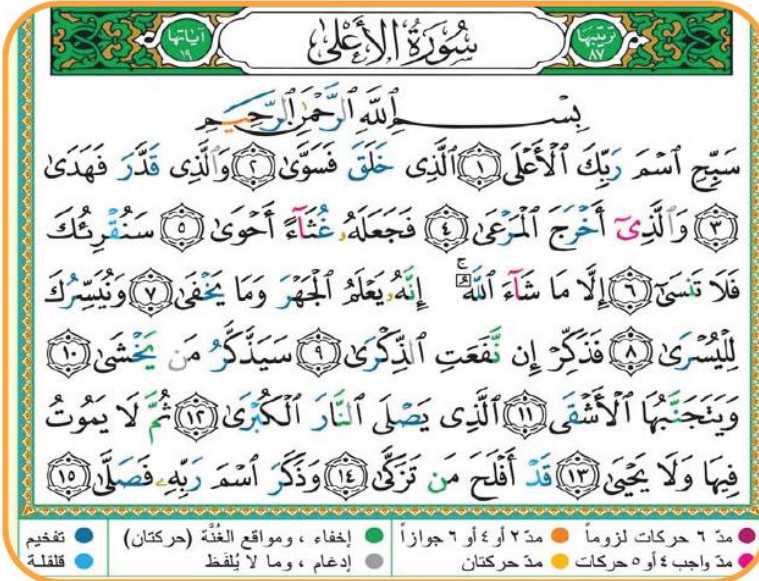 آياتها ١٩ سُورَةُ الأَعْلَىٰ ترتيبها ٨٧
بِسْمِ اللَّهِ الرَّحْمَٰنِ الرَّحِيمِ
سَبِّحِ ٱسْمَ رَبِّكَ ٱلْأَعْلَى ١ ٱلَّذِى خَلَقَ فَسَوَّىٰ ٢ وَٱلَّذِى قَدَّرَ فَهَدَىٰ
٣ وَٱلَّذِىٓ أَخْرَجَ ٱلْمَرْعَىٰ ٤ فَجَعَلَهُۥ غُثَآءً أَحْوَىٰ ٥ سَنُقْرِئُكَ
فَلَا تَنسَىٰٓ ٦ إِلَّا مَا شَآءَ ٱللَّهُ ۚ إِنَّهُۥ يَعْلَمُ ٱلْجَهْرَ وَمَا يَخْفَىٰ ٧ وَنُيَسِّرُكَ
لِلْيُسْرَىٰ ٨ فَذَكِّرْ إِن نَّفَعَتِ ٱلذِّكْرَىٰ ٩ سَيَذَّكَّرُ مَن يَخْشَىٰ ١٠
وَيَتَجَنَّبُهَا ٱلْأَشْقَى ١١ ٱلَّذِى يَصْلَى ٱلنَّارَ ٱلْكُبْرَىٰ ١٢ ثُمَّ لَا يَمُوتُ
فِيهَا وَلَا يَحْيَىٰ ١٣ قَدْ أَفْلَحَ مَن تَزَكَّىٰ ١٤ وَذَكَرَ ٱسْمَ رَبِّهِۦ فَصَلَّىٰ ١٥
مدّ ٦ حركات لزوماً مدّ ٢ أو ٤ أو ٦ جوازاً إخفاء ، ومواقع الغُنَّة (حركتان) تفخيم
مدّ واجب ٤ أو ٥ حركات مدّ حركتان إدغام ، وما لا يُلفَظ قلقلة